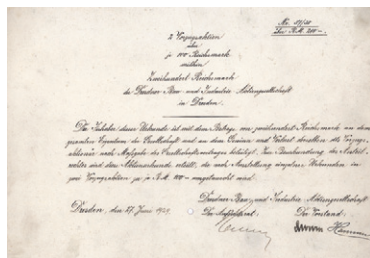 No. 59/60
Zur R.M. 200.–
2 Vorzugsaktien
über
je 100 Reichsmark
mithin
Zweihundert Reichsmark
der Dresdner Bau- und Industrie Aktiengesellschaft
in Dresden.
Der Inhaber dieser Urkunde ist mit dem Betrage von zweihundert Reichsmark an dem
gesamten Eigentum der Gesellschaft und an dem Gewinn und Verlust derselben als Vorzugs-
aktionär nach Maßgabe der Gesellschaftssatzungen beteiligt. Zur Beurkundung des Anteil-
rechts wird diese Aktienurkunde erteilt, die nach Ausstellung einzelner Urkunden in
zwei Vorzugsaktien zu je R.M. 100.– umgetauscht wird.
Dresden, den 27. Juni 1929.
Dresdner Bau- und Industrie Aktiengesellschaft
Der Aufsichtsrat:
Der Vorstand: